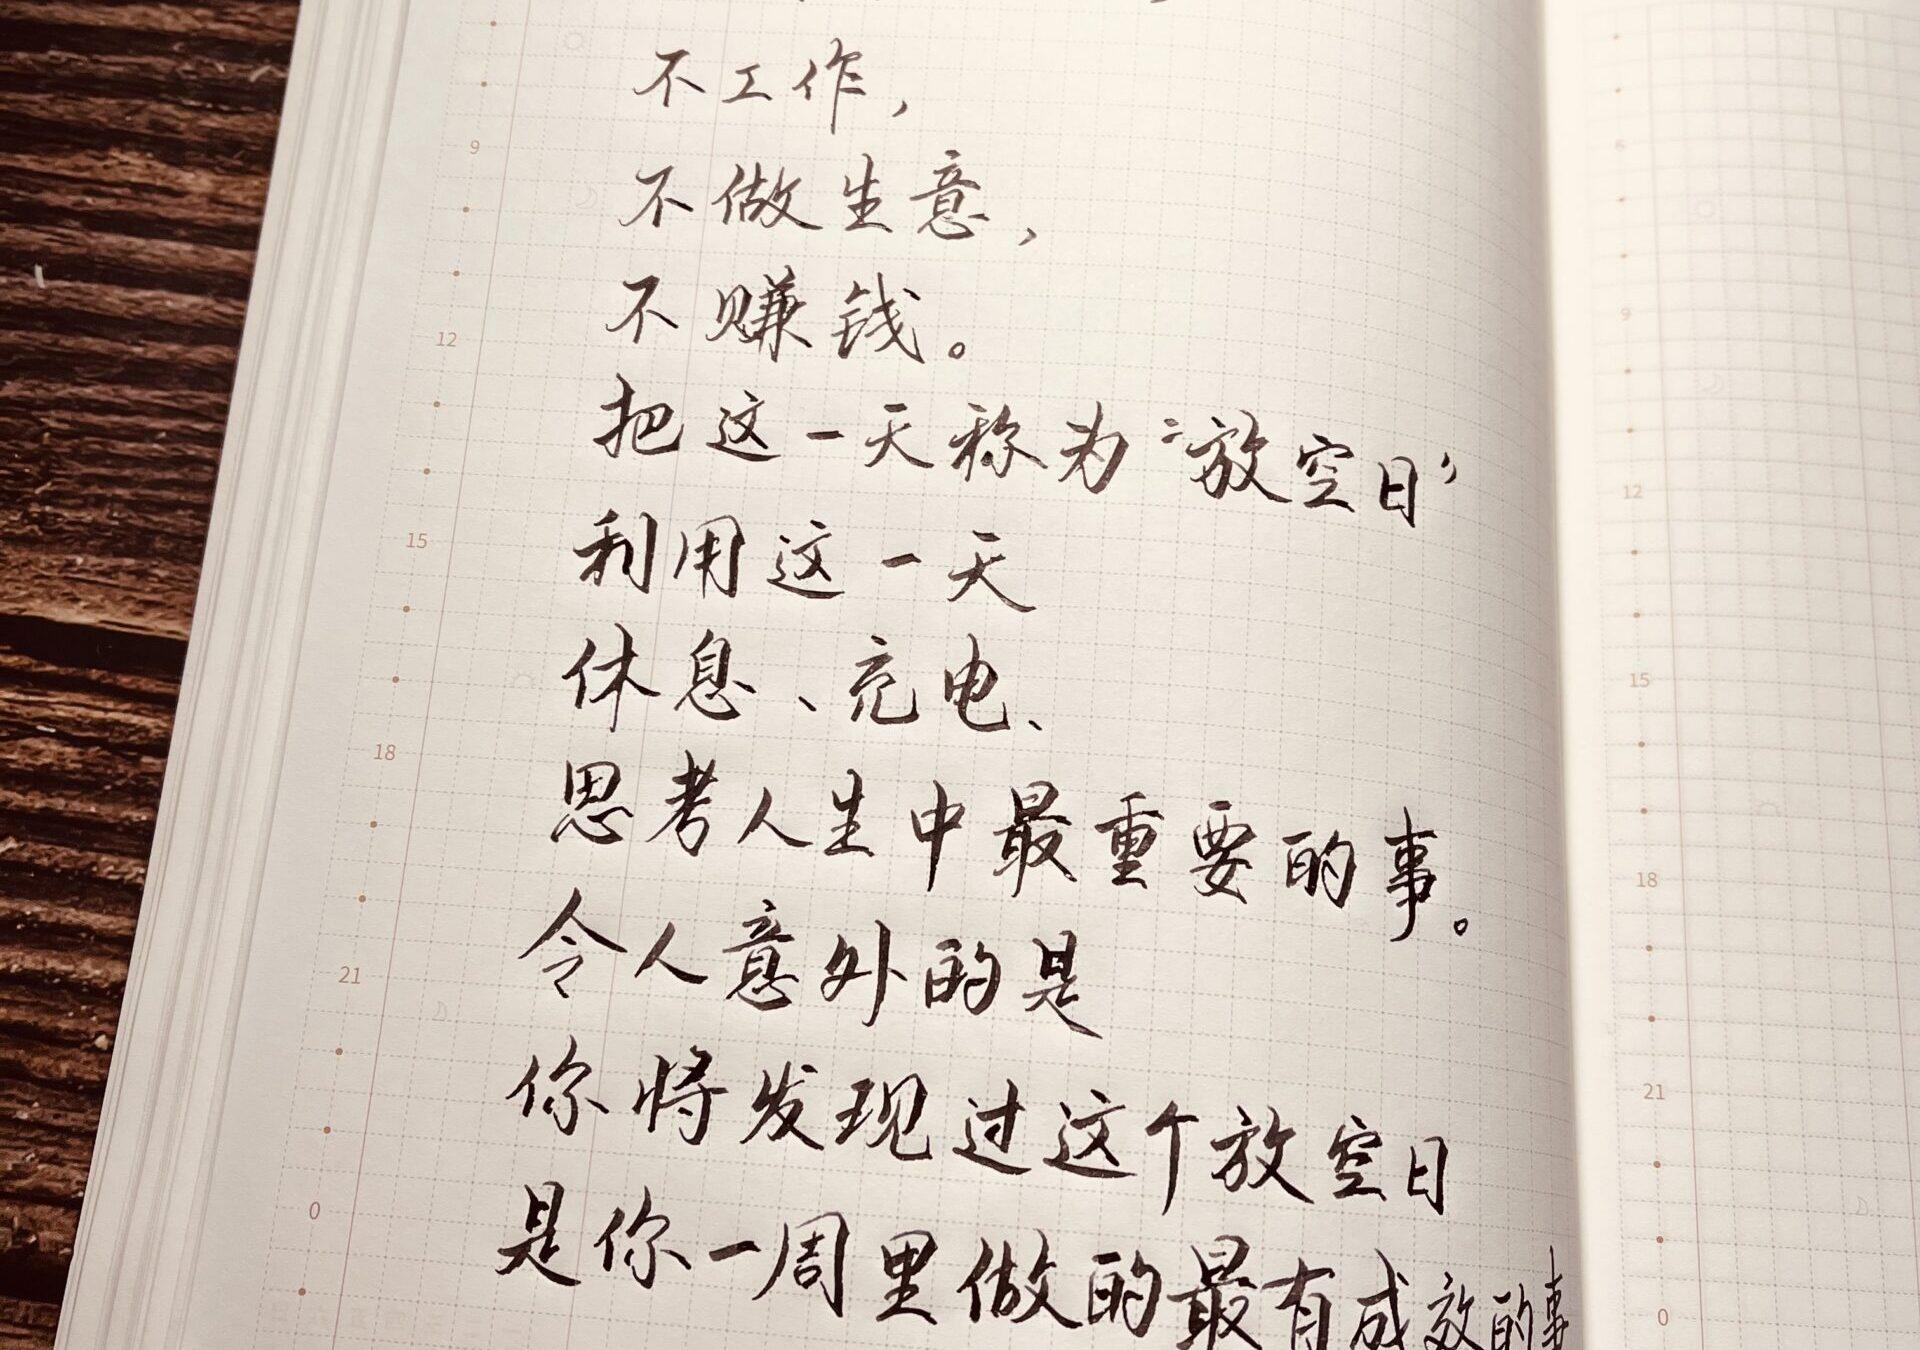 不工作，
不做生意，
不赚钱。
把这一天称为“放空日”
利用这一天
休息、充电、
思考人生中最重要的事。
令人意外的是
你将发现过这个放空日
是你一周里做的最有成效的事
9
12
15
18
21
0
9
12
15
18
21
0